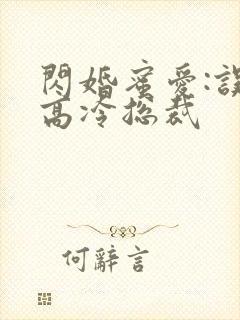 閃婚蜜愛:誤
高冷總裁
何辭言